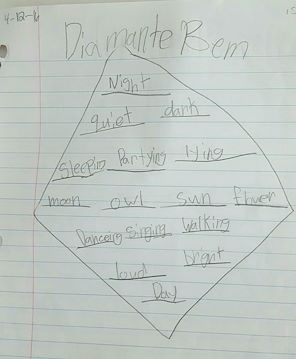 Diamante Bem
Night
quiet dark
Sleeping Partying lying
moon owl sun flower
Danceing Singing Walking
loud bright
Day